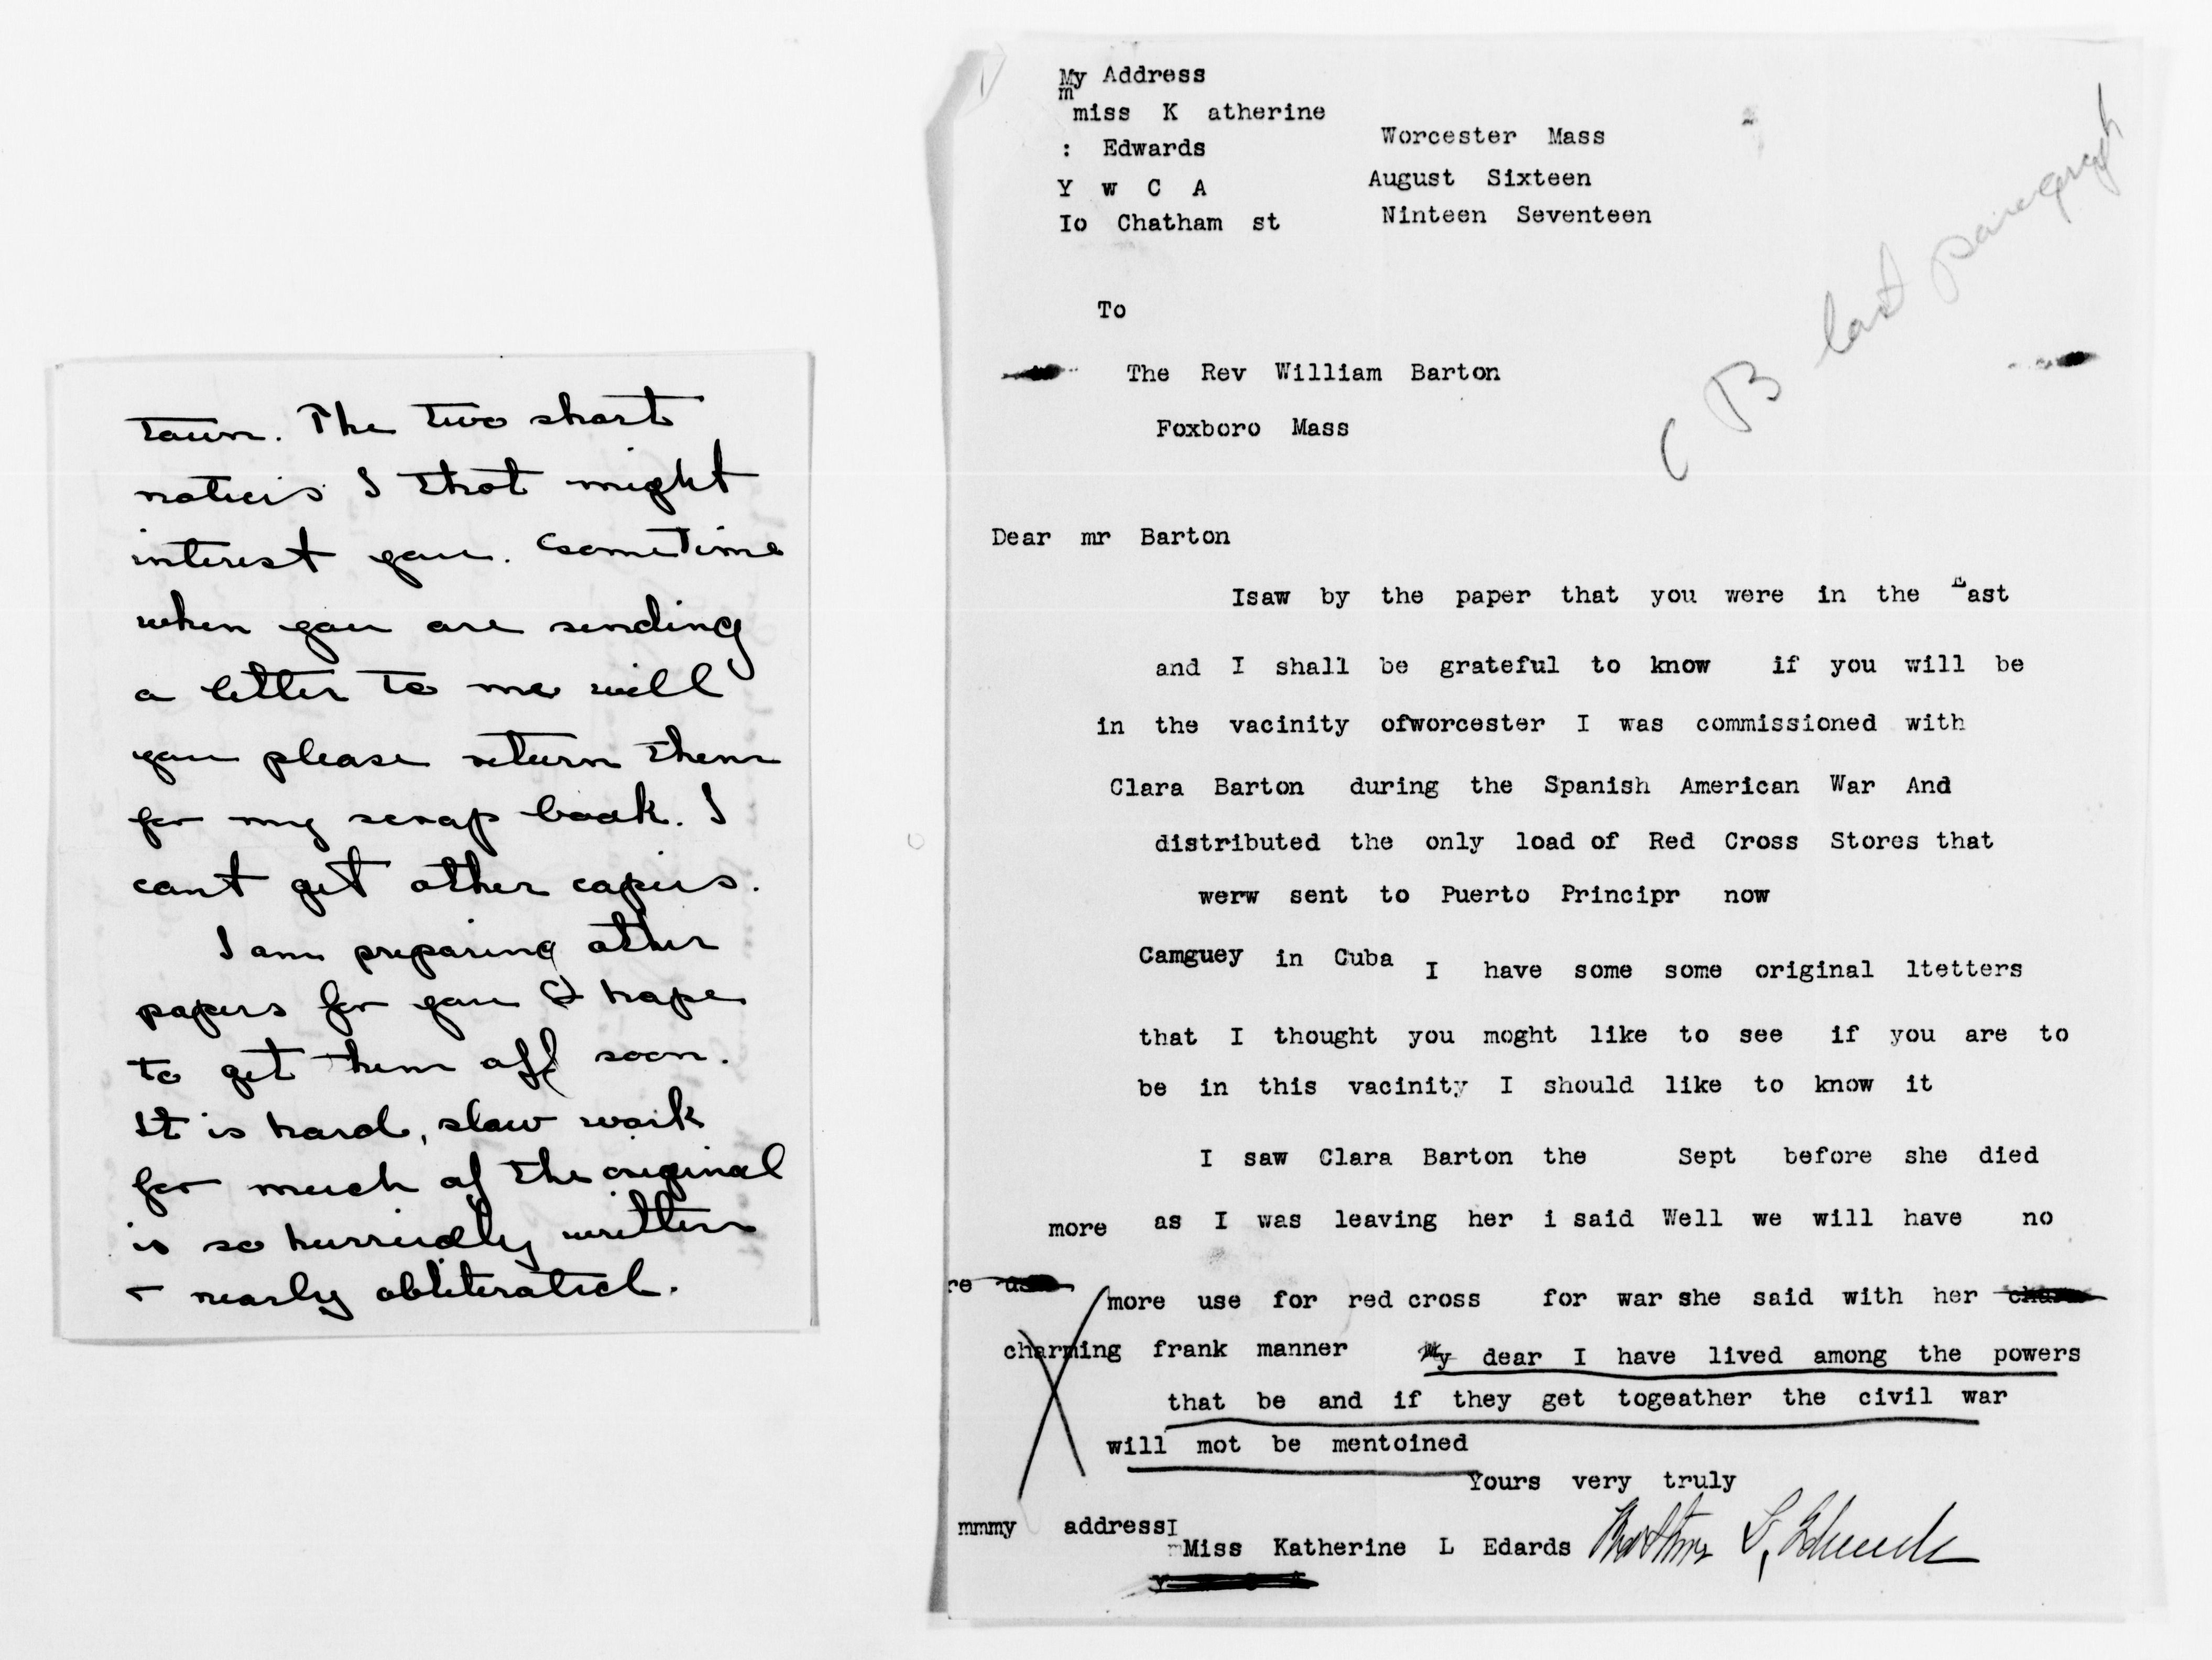 town. The two short
notices I thot might
interest you. Sometime
when you are sending
a letter to me will
you please return them
for my scrap book. I
cant get other copies.
I am preparing other
papers for you & hope
to get them off soon.
It is hard, slow work
for much of the original
is so hurriedly written
+ nearly obliterated.
My Address
m
miss K atherine
: Edwards
Y w C A
Io Chatham st
Worcester Mass
August Sixteen
Ninteen Seventeen
C B last paragraph
To
The Rev William Barton
Foxboro Mass
Dear mr Barton
Isaw by the paper that you were in the East
and I shall be grateful to know if you will be
in the vacinity ofworcester I was commissioned with
Clara Barton during the Spanish American War And
distributed the only load of Red Cross Stores that
werw sent to Puerto Principr now
Camguey in Cuba I have some some original ltetters
that I thought you moght like to see if you are to
be in this vacinity I should like to know it
I saw Clara Barton the Sept before she died
more as I was leaving her i said Well we will have no
re use more use for red cross for war she said with her charm
charming frank manner My dear I have lived among the powers
that be and if they get togeather the civil war
will mot be mentoined
Yours very truly
mmmy addressI
Miss Katherine L Edards Katherine L. Edwards